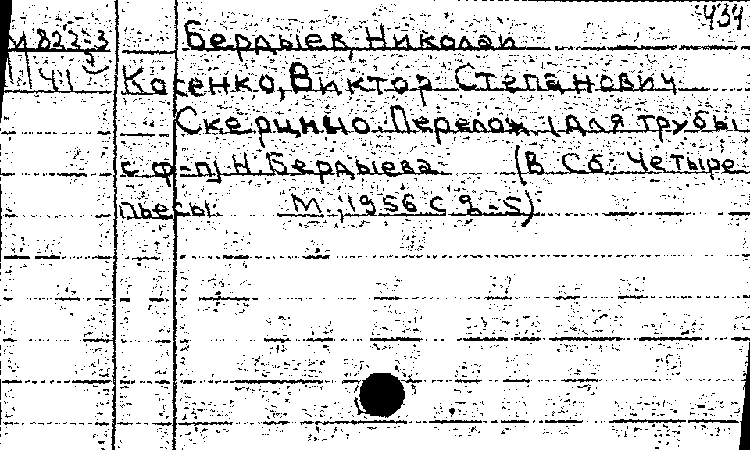 434
М 822-3 Бердыев, Николай
41 Косенко, Виктор Степанович
Скерцино. Перелож. (для трубы
с ф-п) Н. Бердыева. (В сб: Четыре
пьесы. М., 1956 с 2-5).